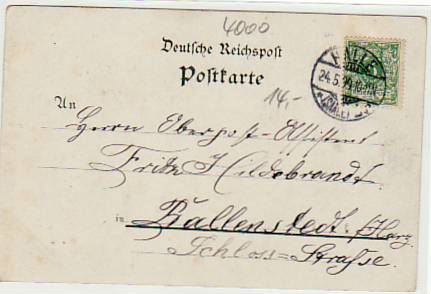 4000
Deutsche Reichspost
Postkarte
14,-
HALLE
24.5.
(SAALE)
An
Herrn Oberpost-Assistent
Fritz Hildebrandt
in Ballenstedt /Harz
Schloss=Strasse.